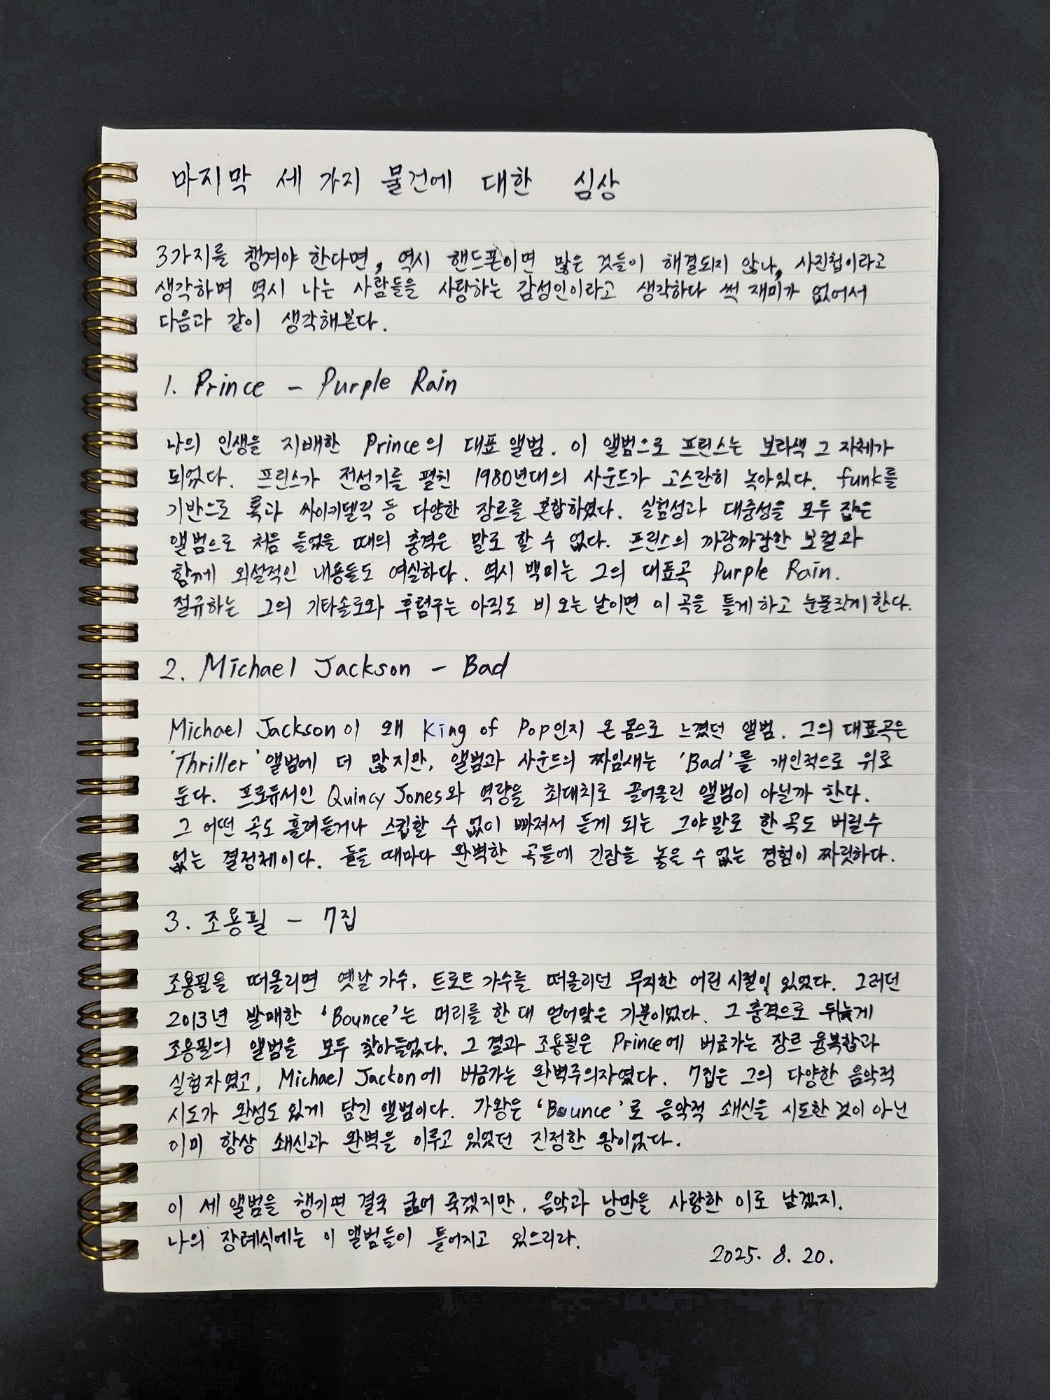 마지막 세 가지 물건에 대한 심상
3가지를 챙겨야 한다면, 역시 핸드폰이면 많은 것들이 해결되지 않나, 사진첩이라고
생각하며 역시 나는 사람들을 사랑하는 감성인이라고 생각하다 썩 재미가 없어서
다음과 같이 생각해본다.
1. Prince - Purple Rain
나의 인생을 지배한 Prince의 대표 앨범. 이 앨범으로 프린스는 보라색 그 자체가
되었다. 프린스가 전성기를 펼친 1980년대의 사운드가 고스란히 녹아있다. funk를
기반으로 록과 싸이키델릭 등 다양한 장르를 혼합하였다. 실험성과 대중성을 모두 잡은
앨범으로 처음 들었을 때의 충격은 말로 할 수 없다. 프린스의 까랑까랑한 보컬과
함께 외설적인 내용들도 여실하다. 역시 백미는 그의 대표곡 Purple Rain.
절규하는 그의 기타솔로와 후렴구는 아직도 비 오는 날이면 이 곡을 틀게 하고 눈물짓게 한다.
2. Michael Jackson - Bad
Michael Jackson이 왜 King of Pop인지 온 몸으로 느꼈던 앨범. 그의 대표곡은
'Thriller' 앨범에 더 많지만, 앨범과 사운드의 짜임새는 'Bad'를 개인적으로 위로
둔다. 프로듀서인 Quincy Jones와 역량을 최대치로 끌어올린 앨범이 아닐까 한다.
그 어떤 곡도 흘려듣거나 스킵할 수 없이 빠져서 듣게 되는 그야말로 한 곡도 버릴수
없는 결정체이다. 들을 때마다 완벽한 곡들에 긴장을 놓을 수 없는 경험이 짜릿하다.
3. 조용필 - 7집
조용필을 떠올리면 옛날 가수, 트로트 가수를 떠올리던 무지한 어린 시절이 있었다. 그러던
2013년 발매한 'Bounce'는 머리를 한 대 얻어맞은 기분이었다. 그 충격으로 뒤늦게
조용필의 앨범을 모두 찾아들었다. 그 결과 조용필은 Prince에 버금가는 장르 융복합과
실험자였고, Michael Jackton에 버금가는 완벽주의자였다. 7집은 그의 다양한 음악적
시도가 완성도 있게 담긴 앨범이다. 가왕은 'Bounce'로 음악적 쇄신을 시도한 것이 아닌
이미 항상 쇄신과 완벽을 이루고 있었던 진정한 왕이었다.
이 세 앨범을 챙기면 결국 굶어 죽겠지만, 음악과 낭만을 사랑한 이로 남겠지.
나의 장례식에는 이 앨범들이 틀어지고 있으리라.
2025. 8. 20.